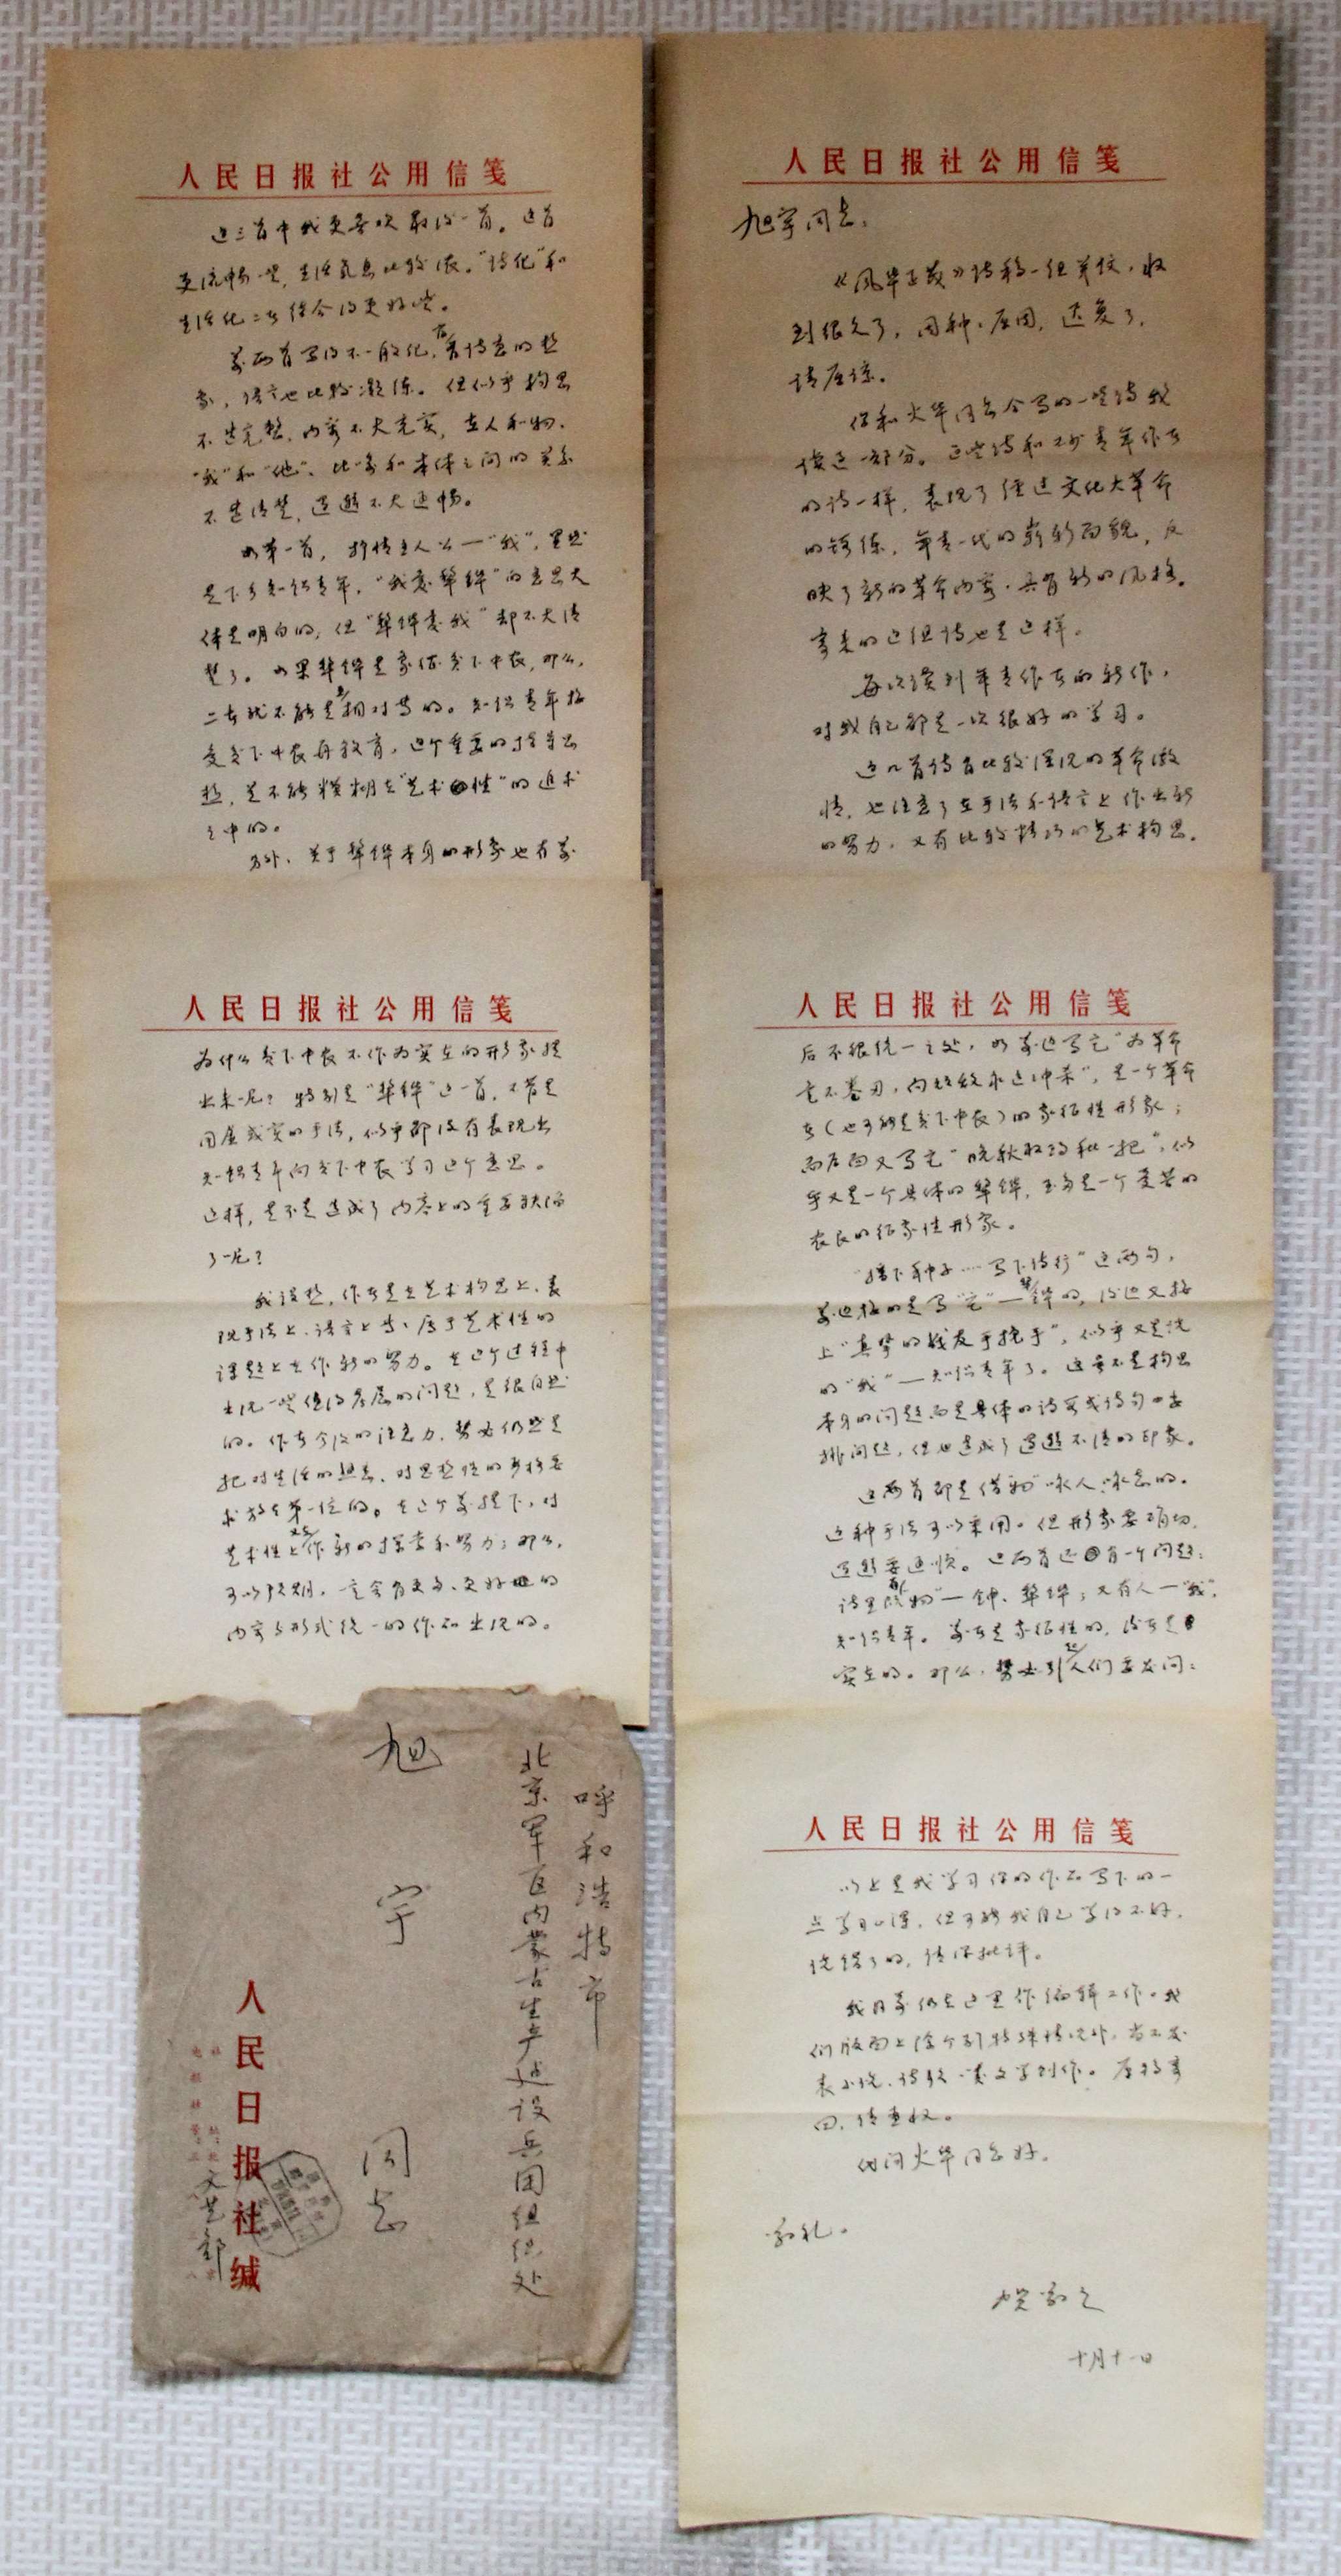 人民日报社公用信笺
旭宇同志：
《风华正茂》诗稿一组并信，收
到很久了，因种种原因，迟复了，
请原谅。
你和火华同志合写的一些诗我
读过一部分。这些诗和不少青年作者
的诗一样，表现了经过文化大革命
的锻练，年青一代的崭新面貌，反
映了新的革命内容，具有新的风格。
寄来的这组诗也是这样。
每次读到年青作者的新作，
对我自己都是一次很好的学习。
这几首诗有比较深沉的革命激
情，也注意了在手法和语言上作出新
的努力，又有比较精巧的艺术构思。
人民日报社公用信笺
这三首中我更喜欢最后一首。这首
更流畅一些，生活气息比较浓。“诗化”和
生活化二者结合得更好些。
前两首写得不一般化，有着诗意的想
象，语言也比较凝练。但似乎构思
不甚完整，内容不大充实，在人和物、
“我”和“他”、比喻和本体之间的关系
不甚清楚，逻辑不大通畅。
如第一首，抒情主人公—“我”，显然
是下乡知识青年，“我恋犁铧”的意思大
体是明白的；但“犁铧恋我”却不大清
楚了。如果犁铧是象征贫下中农，那么，
二者就不能是相对等的。知识青年接
受贫下中农再教育，这个重要的指导思
想，是不能模糊在“艺术性”的追求
之中的。
另外，关于犁铧本身的形象也有前
人民日报社公用信笺
后不很统一之处，如前边写它“为革命
意不卷刃，向投敌永远冲杀”，是一个革命
者（也可能是贫下中农）的象征性形象；
而后面又写它“晚秋收的和一把”，似
乎又是一个具体的犁铧，至多是一个受苦的
农民的征象性形象。
“播下种子…写下诗行”这两句，
前边接的是写“它”—犁铧的，后边又接
上“真挚的战友手挽手”，似乎又是说
的“我”—知识青年了。这要不是构思
本身的问题而是具体的诗节或诗句的安
排问题，但也造成了逻辑不清的印象。
这两首都是借物咏人、咏志的。
这种手法可以采用。但形象要确切，
逻辑要通顺。这两首还有一个问题：
诗里既有“物”—钟、犁铧；又有人—“我”，
知识青年。前者是象征性的，后者是
实在的。那么，势必引起人们要发问：
人民日报社公用信笺
为什么贫下中农不作为实在的形象提
出来呢？特别是“犁铧”这一首，不管是
用虚或实的手法，似乎都没有表现出
知识青年向贫下中农学习这个意思。
这样，是不是造成了内容上的重要缺陷
了呢？
我设想，作者是在艺术构思上、表
现手法上、语言上等，属于艺术性的
课题上在作新的努力。在这个过程中
出现一些值得考虑的问题，是很自然
的。作者今后的注意力，势必仍然是
把对生活的熟悉、对思想性的严格要
求放在第一位的。在这个前提下，对
艺术性上又作新的探索和努力；那么，
可以预期，一定会有更多、更好的
内容与形式统一的作品出现的。
人民日报社公用信笺
以上是我学习你的作品写下的一
点学习心得，但可能我自己学得不好，
说错了的，请你批评。
我目前仍在这里作编辑工作。我
们版面上除个别特殊情况外，尚不发
表小说、诗歌一类文学创作。原稿寄
回，请查收。
代问火华同志好。
敬礼。
贺敬之
十月十一日
呼和浩特市
北京军区内蒙古生产建设兵团组织处
旭宇 同志
人民日报社缄
文艺部